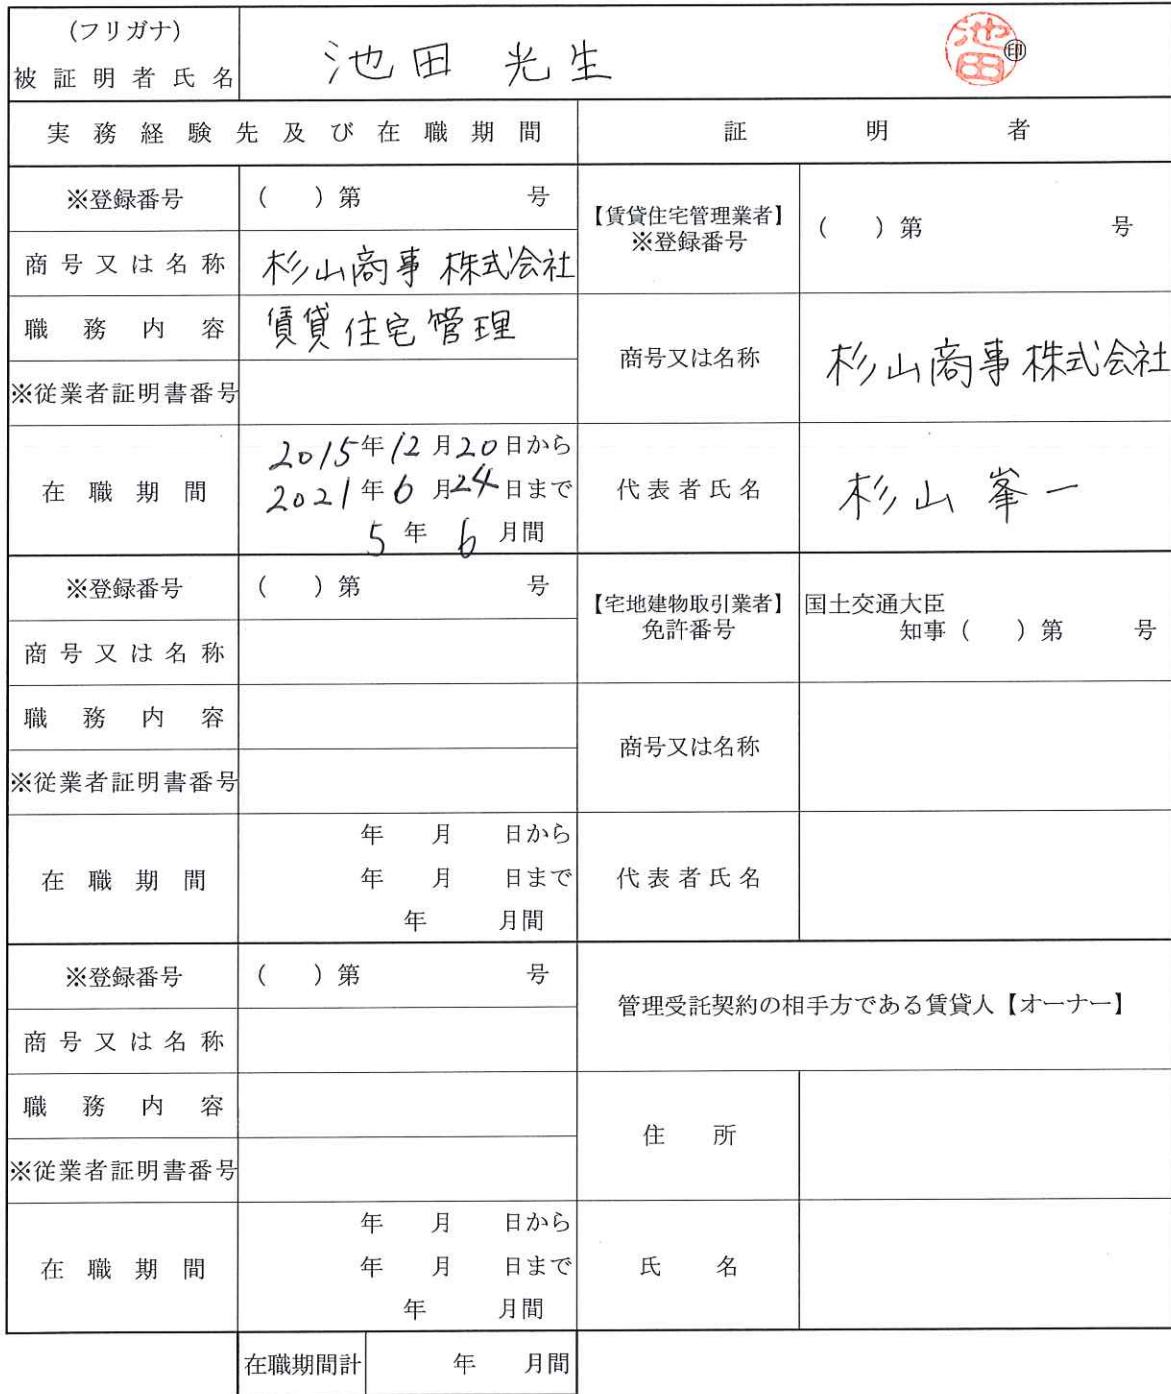 (フリガナ)
被証明者氏名 池田 光生 池田 ㊞
実務経験先及び在職期間 証明者
※登録番号 ( ) 第 号
【賃貸住宅管理業者】
※登録番号 ( ) 第 号
商号又は名称 杉山商事 株式会社
職務内容 賃貸住宅管理
商号又は名称 杉山商事株式会社
※従業者証明書番号
在職期間
2015年12月20日から
2021年6月24日まで
5年6月間
代表者氏名 杉山 峯一
※登録番号 ( ) 第 号
【宅地建物取引業者】
免許番号
国土交通大臣
知事 ( ) 第 号
商号又は名称
職務内容
商号又は名称
※従業者証明書番号
在職期間
年 月 日から
年 月 日まで
年 月間
代表者氏名
※登録番号 ( ) 第 号
管理受託契約の相手方である賃貸人【オーナー】
商号又は名称
職務内容
住所
※従業者証明書番号
在職期間
年 月 日から
年 月 日まで
年 月間
氏名
在職期間計 年 月間